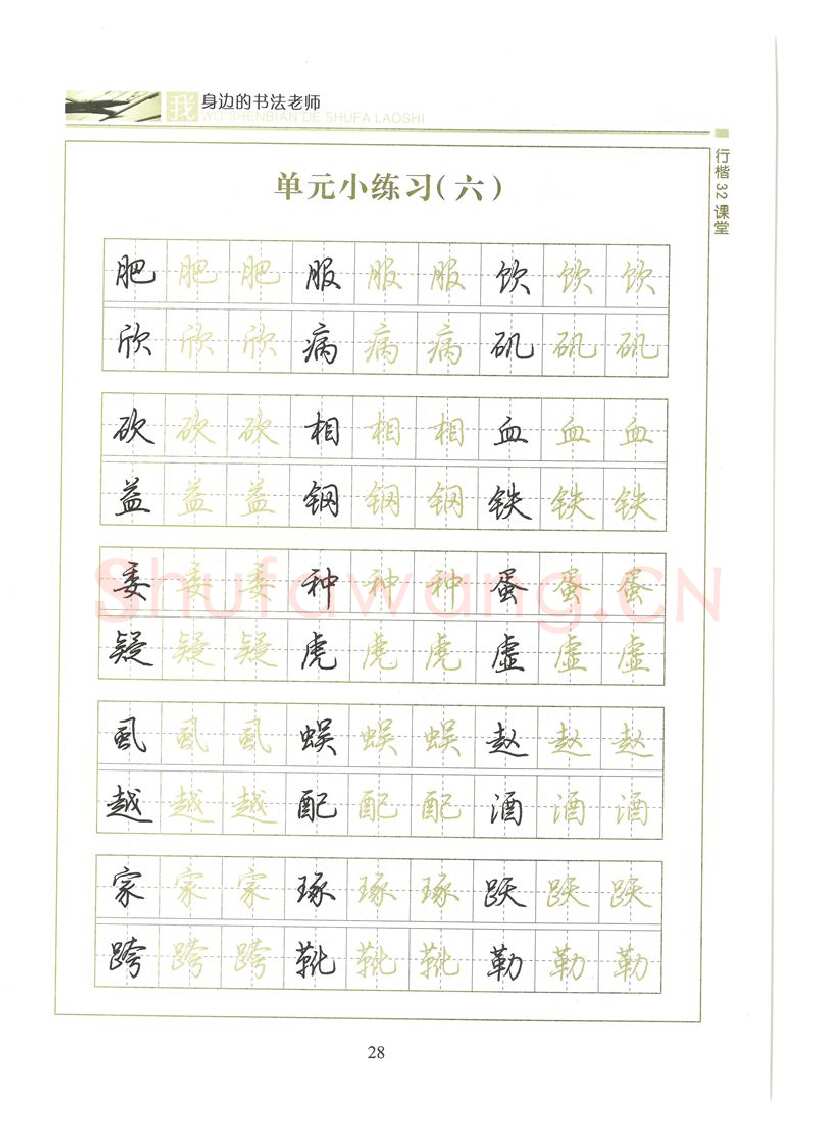 我身边的书法老师
WO SHENBIAN DE SHUFA LAOSHI
行楷32课堂
单元小练习(六)
肥肥肥服服服饮饮饮
欣欣欣病病病矾矾矾
砍砍砍相相相血血血
益益益钢钢钢铁铁铁
委委委种种种蛋蛋蛋
Shufawang.CN
疑疑疑虎虎虎虚虚虚
虱虱虱蜈蜈蜈赵赵赵
越越越配配配酒酒酒
家家家琢琢琢跃跃跃
跨跨跨靴靴靴勒勒勒
28